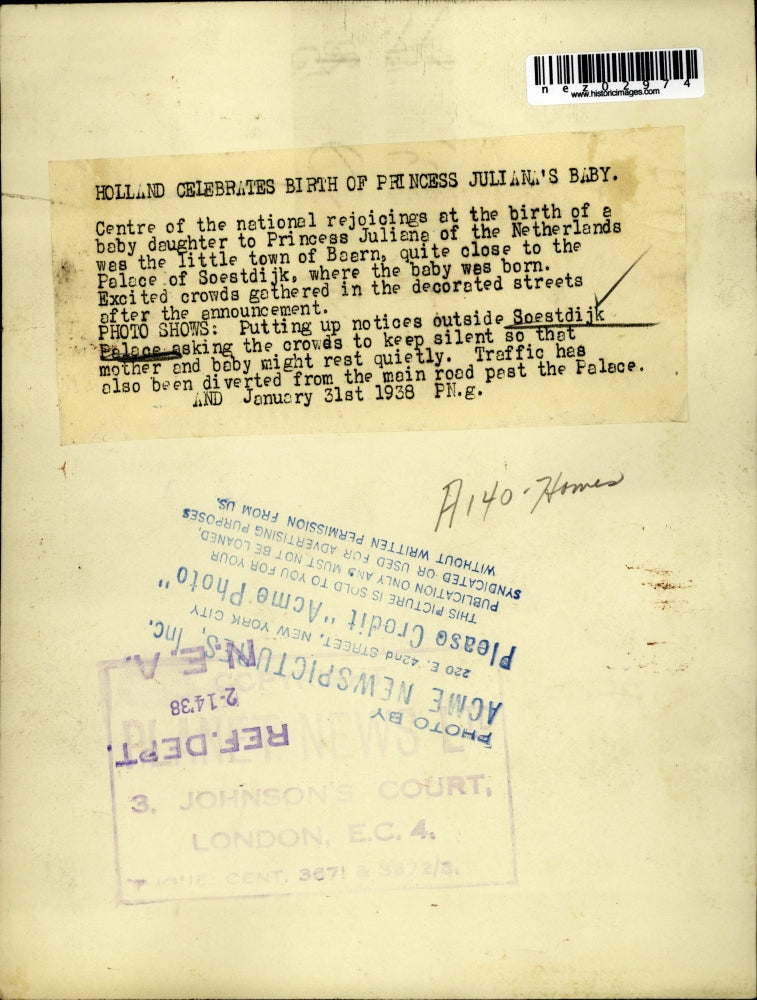 n e z 0 2 9 7 4
www.historicimages.com
HOLLAND CELEBRATES BIRTH OF PRINCESS JULIANA'S BABY.
Centre of the national rejoicings at the birth of a
baby daughter to Princess Juliana of the Netherlands
was the little town of Baarn, quite close to the
Palace of Soestdijk, where the baby was born.
Excited crowds gathered in the decorated streets
after the announcement.
PHOTO SHOWS: Putting up notices outside Soestdijk
Palace asking the crowds to keep silent so that
mother and baby might rest quietly. Traffic has
also been diverted from the main road past the Palace.
AND January 31st 1938 PN.g.
A140-Homes
PHOTO BY
ACME NEWSPICTURES, Inc.
220 E. 42nd STREET, NEW YORK CITY
Please Credit "Acme Photo"
THIS PICTURE IS SOLD TO YOU FOR YOUR
PUBLICATION ONLY AND MUST NOT BE LOANED,
SYNDICATED OR USED FOR ADVERTISING PURPOSES
WITHOUT WRITTEN PERMISSION FROM US.
REF. DEPT.
2-14'38
N. E. A.
PLANET NEWS
3, JOHNSON'S COURT,
LONDON, E.C. 4.
CENT. 3671 & 3672/3.